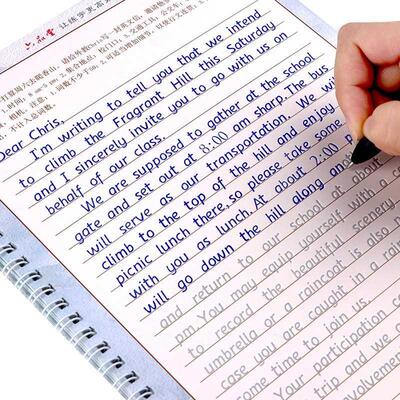 让练字更高
打算周六去爬香山，请给外教Chris写一封英文信，邀请他
1.时间，8 am-5 pm；2.集合地点，校门口；3.交通工具，公交车；
注意：1.词数不少于60；2.可适当增加细节，以使行文连贯；3.
不计入总词数。
Dear Chris,
I'm writing to tell you that we intend
to climb the Fragrant Hill this Saturday
and I sincerely invite you to go with us on
behalf of our class.
We are supposed to gather at the school
gate and set out at 8:00 am sharp. The bus
will serve as our transportation. We wil
climb to the top of the hill and enjoy
picnic lunch there, so please take some
with you as lunch. At about 2:00 p
will go down the hill along an
and return to our school at about
pm. You may equip yourself with a c
to record the beautiful scenery
umbrella or a raincoat is also n
case you are caught in a rain
some time to join us.
Your participation
trip and we a
involvemen